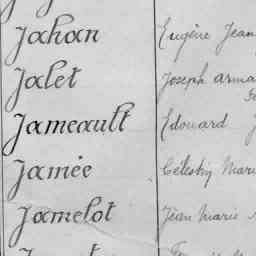 Jahan Eugène Jean
Jalet Joseph arma
Jameault Edouard
Jamée Célestin Mari
Jamelot Jean Marie